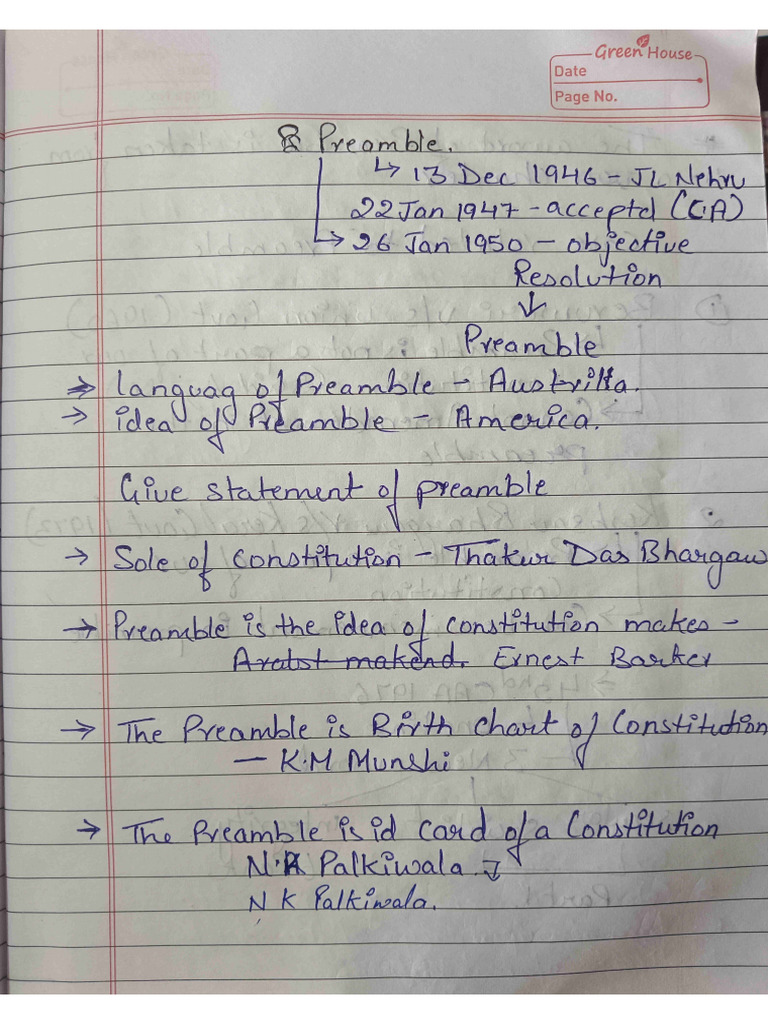 Green House
Date
Page No.
Preamble.
↳ 13 Dec 1946 - JL Nehru
22 Jan 1947 - acceptd (CA)
↳ 26 Jan 1950 - objective
Resolution
↓
Preamble
→ languag of Preamble - Austrilla.
→ idea of Preamble - America.
Give statement of preamble
→ Sole of constitution - Thakur Das Bhargaw
→ Preamble is the idea of constitution makes -
Ernest Barker
→ The Preamble is Birth chart of Constitution
- K.M Munshi
→ The Preamble is id card of a Constitution
N.K Palkiwala.
N K Palkiwala.